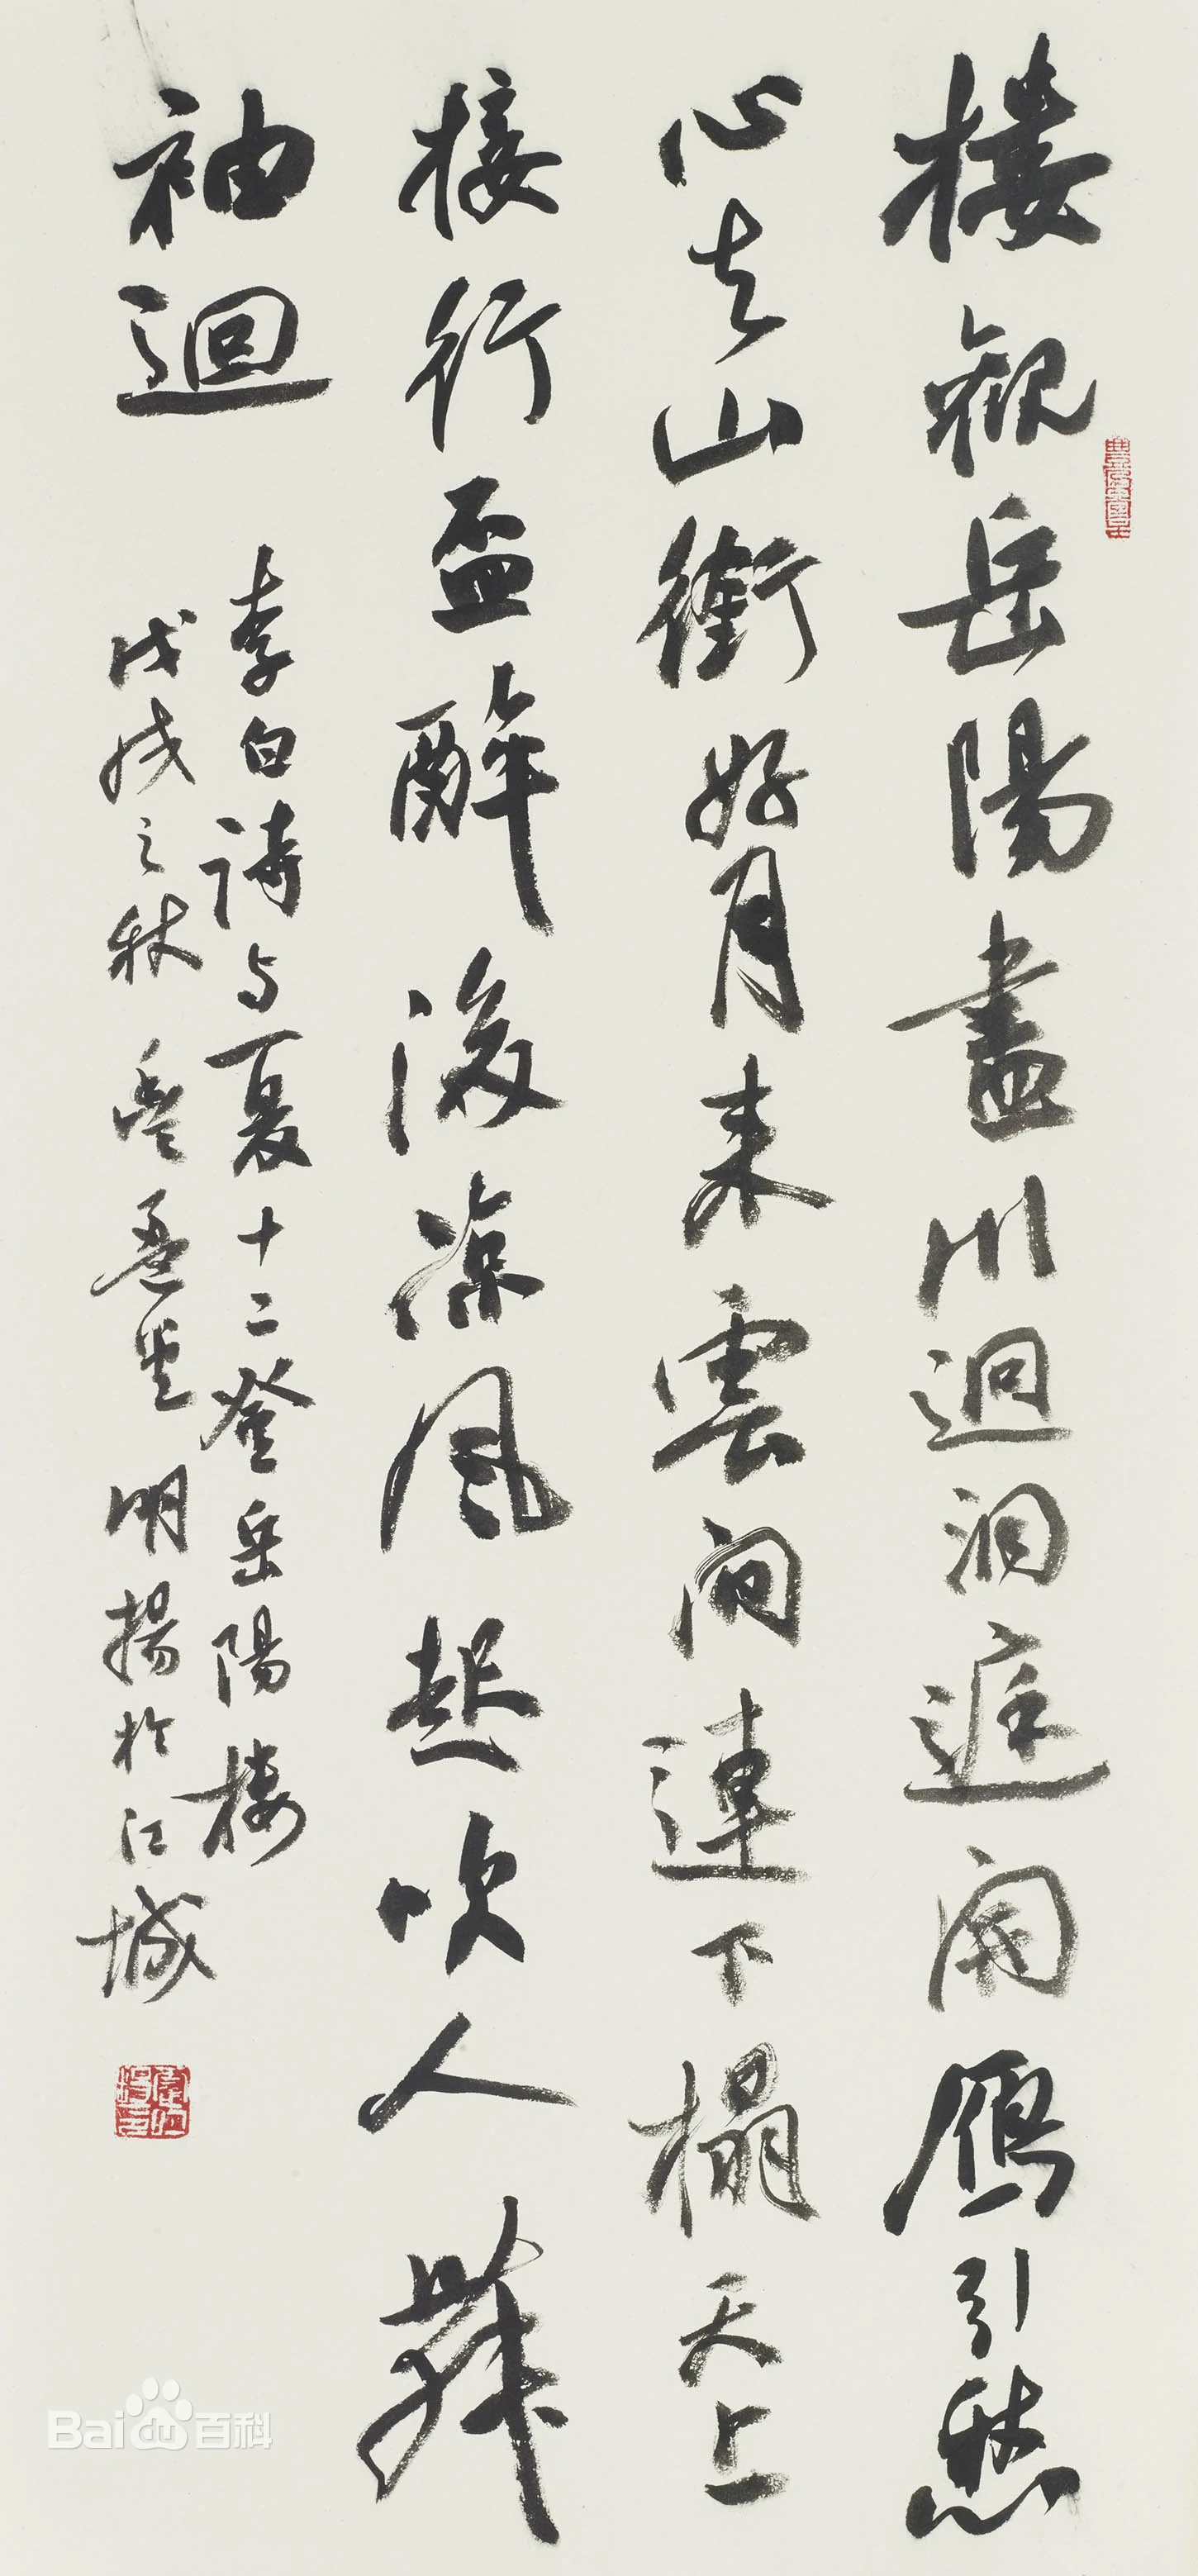 楼观岳陽盡川迥洞庭開雁引愁
心去山銜好月来雲间連下榻天上
接行盃醉後凉風起吹人舞
袖迴
李白詩与夏十二登岳陽楼
戊戌之秋 明揚於江城
Bai百科